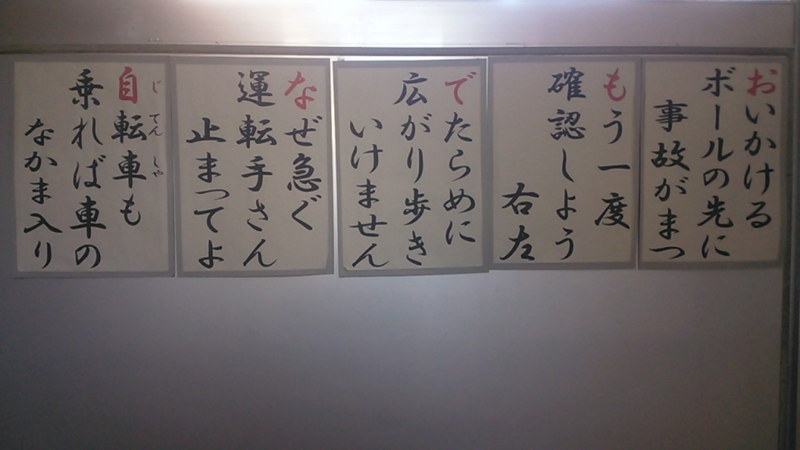 おいかける
ボールの先に
事故がまつ
もう一度
確認しよう
右左
でたらめに
広がり歩き
いけません
なぜ急ぐ
運転手さん
止まってよ
自転車も
じてんしゃ
乗れば車の
なかま入り